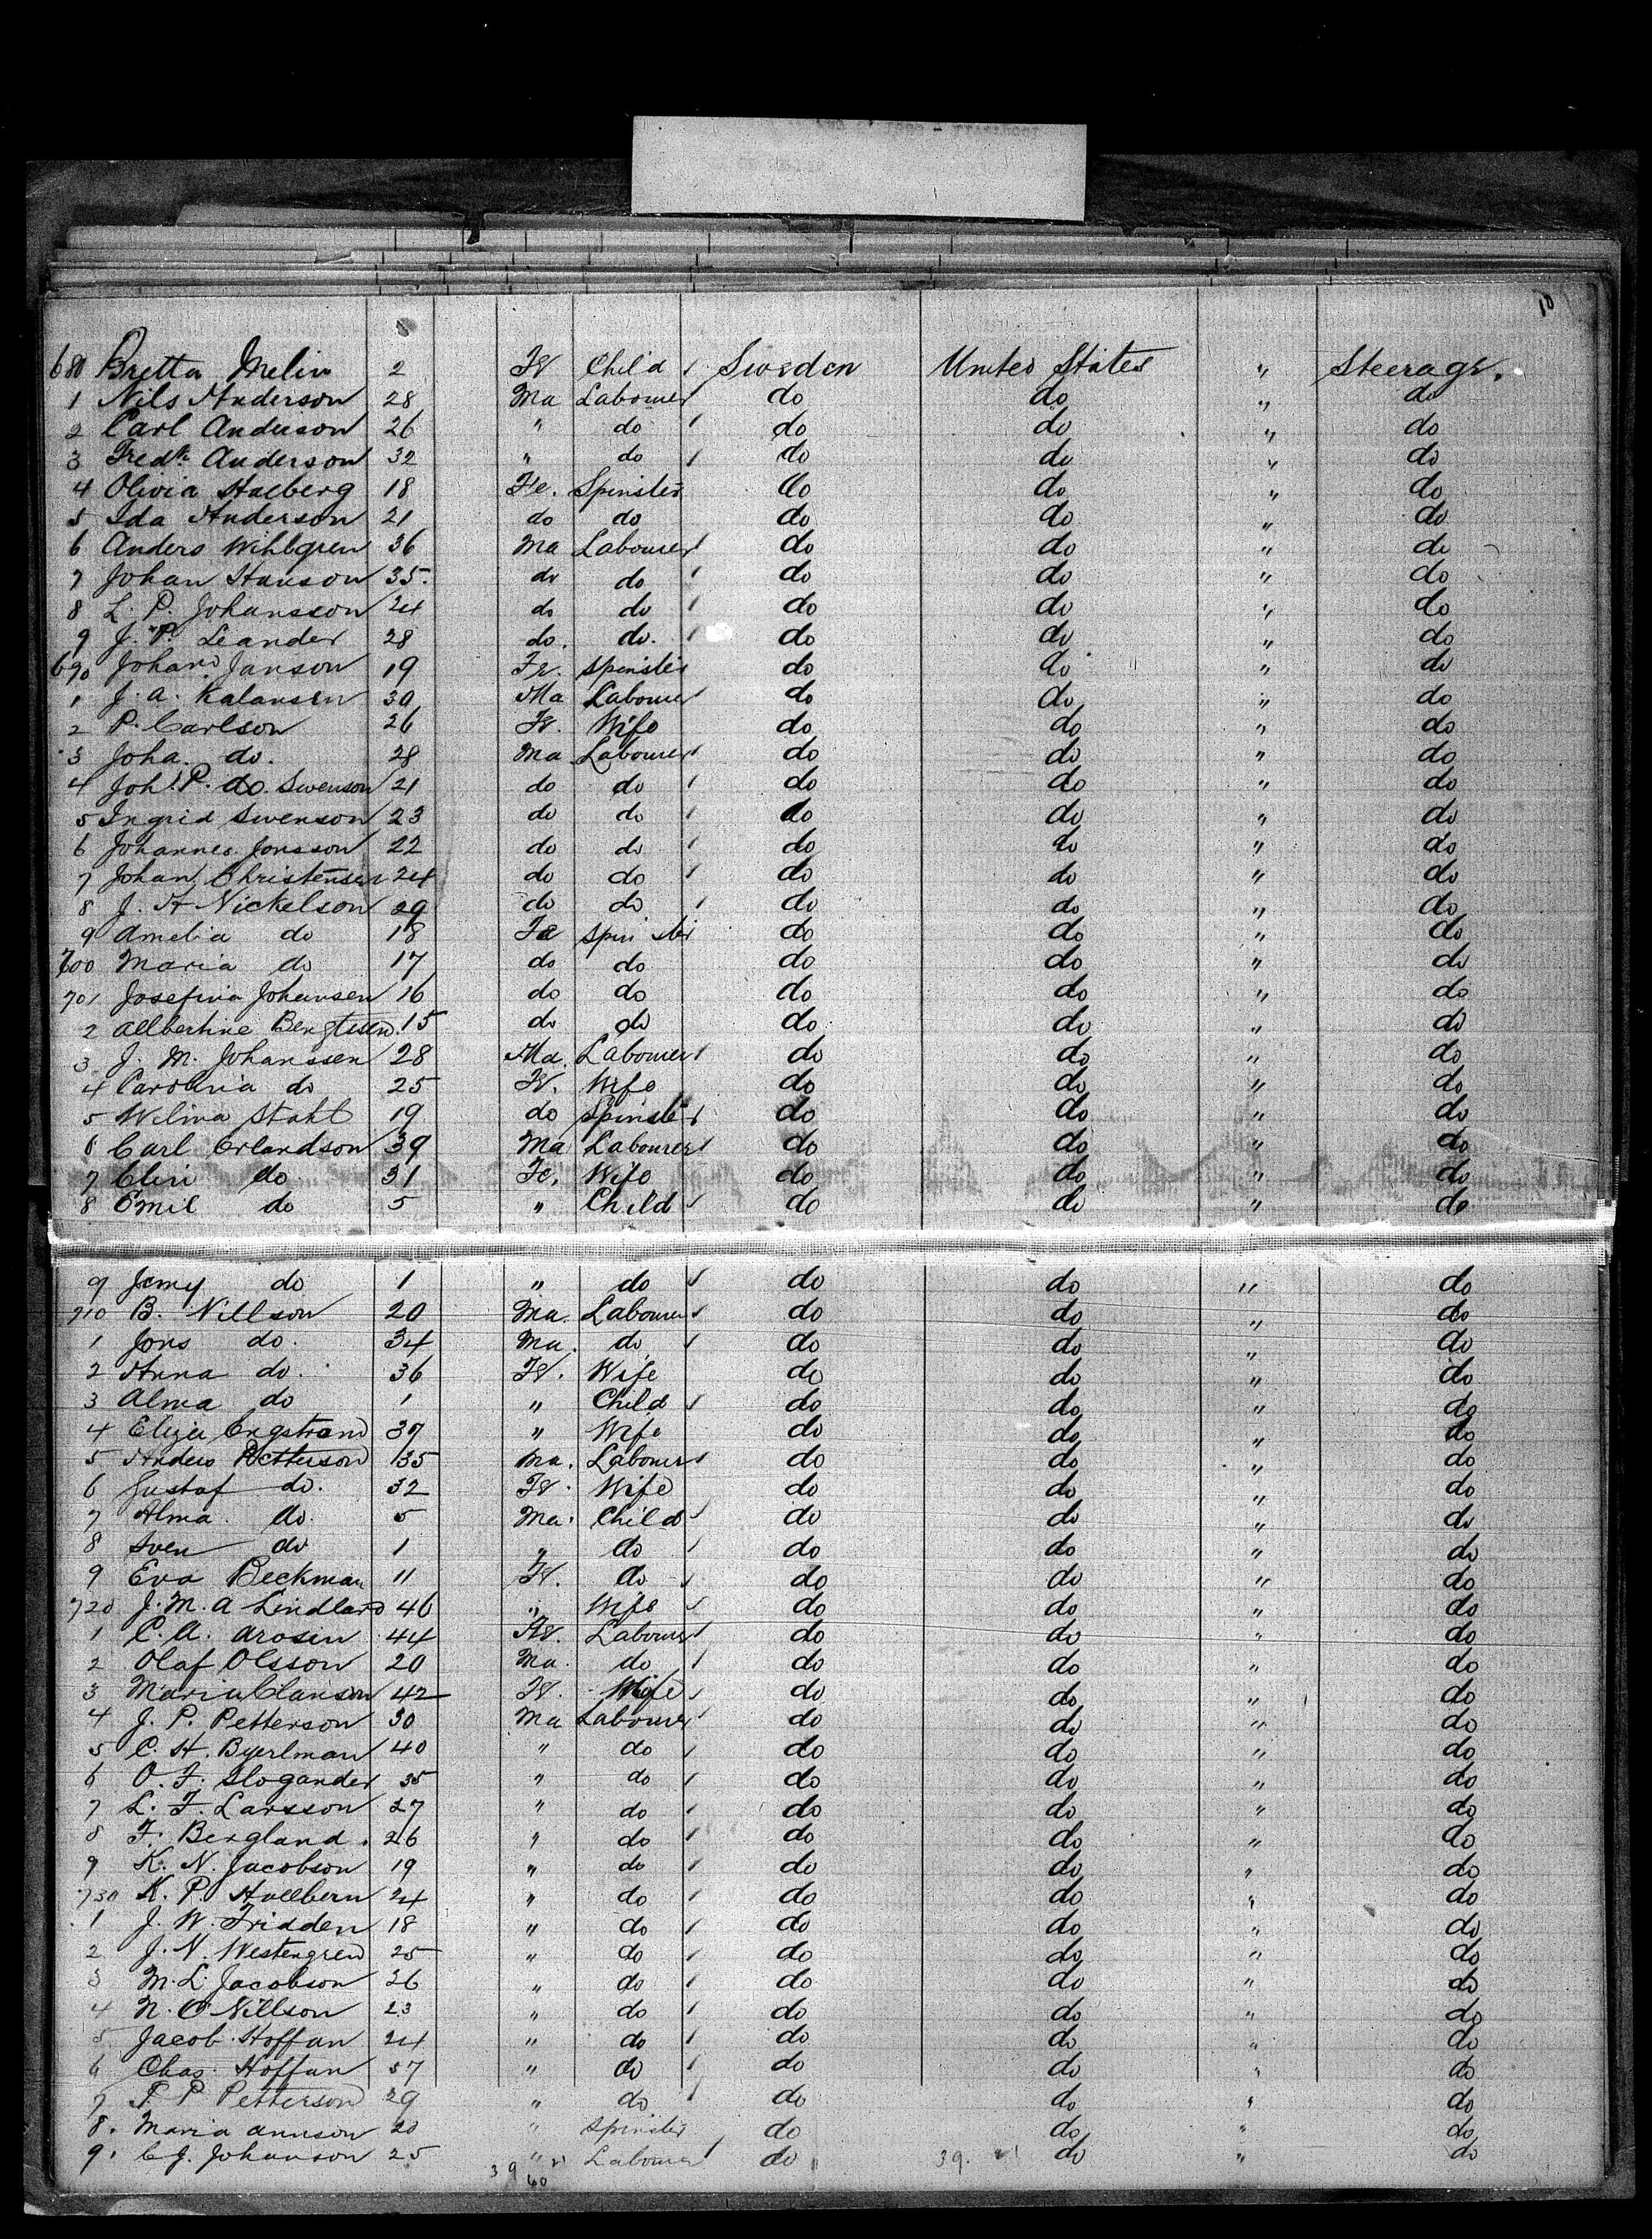 10
680 Bretta Melin 2 Fe Child Sweden United States " Steerage.
1 Nils Anderson 28 Ma Labourer do do " do
2 Carl Anderson 26 " do do do " do
3 Fredk. Anderson 32 " do do do " do
4 Olivia Halberg 18 Fe. Spinster do do " do
5 Ida Anderson 21 do do do do " do
6 Anders Wihlgren 36 Ma Labourer do do " do
7 Johan Hanson 35. do do do do " do
8 L. P. Johansson 24 do do do do " do
9 J. P. Leander 28 do. do. do do " do
690 Johan Janson 19 Fe. Spinster do do " do
1 J. A. Kalansen 30 Ma Labourer do do " do
2 P. Carlson 26 Fe. Wife do do " do
3 Joha. do. 28 Ma Labourer do do " do
4 Joh. P. do. Swenson 21 do do do do " do
5 Ingrid Swenson 23 do do do do " do
6 Johannes Jonsson 22 do do do do " do
7 Johan Christensen 24 do do do do " do
8 J. H Nickelson 29 do do do do " do
9 Amelia do 18 Fe Spinster do do " do
700 Maria do 17 do do do do " do
701 Josefina Johansen 16 do do do do " do
2 Allbertine Bengtssen 15 do do do do " do
3 J. M. Johanssen 28 Ma. Labourer do do " do
4 Carolina do 25 Fe. Wife do do " do
5 Wilma Stahl 19 do Spinster do do " do
6 Carl Erlandson 39 Ma Labourer do do " do
7 Clin do 31 Fe. Wife do do " do
8 Emil do 5 " Child do do " do
9 Jemy do 1 " do do do " do
710 B. Nillson 20 Ma. Labourer do do " do
1 Jons do. 34 Ma. do do do " do
2 Anna do. 36 Fe. Wife do do " do
3 Alma do 1 " Child do do " do
4 Eliza Engstrand 37 " Wife do do " do
5 Anders Petterson 35 Ma. Labourer do do " do
6 Gustaf do. 32 Fe. Wife do do " do
7 Alma. do. 5 Ma. Child do do " do
8 Sven do 1 " do do do " do
9 Eva Beckman 11 Fe. do do do " do
720 J. M. A Lindlard 46 " Wife do do " do
1 C. A. Arosin 44 Fe. Labourer do do " do
2 Olaf Olsson 20 Ma. do do do " do
3 Maria Clanson 42 Fe. Wife do do " do
4 J. P. Petterson 30 Ma Labourer do do " do
5 C. H. Byerlman 40 " do do do " do
6 O. F. Slogander 35 " do do do " do
7 L. F. Larsson 27 " do do do " do
8 F. Bergland. 26 " do do do " do
9 K. N. Jacobson 19 " do do do " do
730 K. P. Hallbern 24 " do do do " do
1 J. W. Fridden 18 " do do do " do
2 J. N. Westengren 25 " do do do " do
3 M. L. Jacobson 26 " do do do " do
4 N. O Nillson 23 " do do do " do
5 Jacob Hoffan 24 " do do do " do
6 Chas. Hoffan 57 " do do do " do
7 P. P Petterson 29 " do do do " do
8. Maria Annson 20 " Spinster do do " do
9. C J. Johanson 25 " Labourer do do " do
39 21 39. 21
60